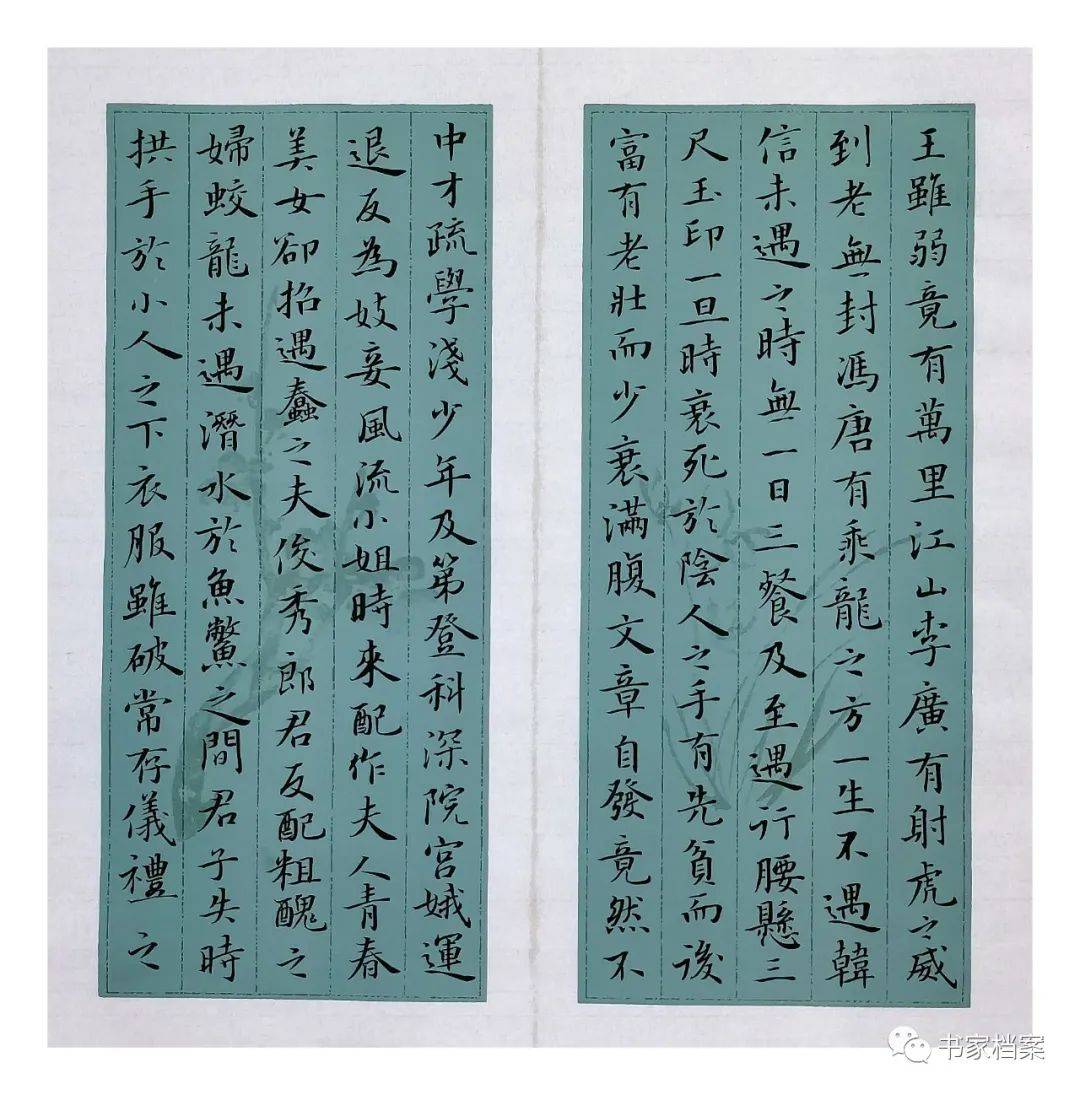 王雖弱竟有萬里江山李廣有射虎之威
到老無封馮唐有乘龍之方一生不遇韓
信未遇之時無一日三餐及至遇行腰懸三
尺玉印一旦時衰死於陰人之手有先貧而後
富有老壯而少衰滿腹文章自發竟然不
中才疏學淺少年及第登科深院宮娥運
退反為妓妾風流小姐時來配作夫人青春
美女卻招遇蠢之夫俊秀郎君反配粗醜之
婦蛟龍未遇潛水於魚鱉之間君子失時
拱手於小人之下衣服雖破常存儀禮之
书家档案